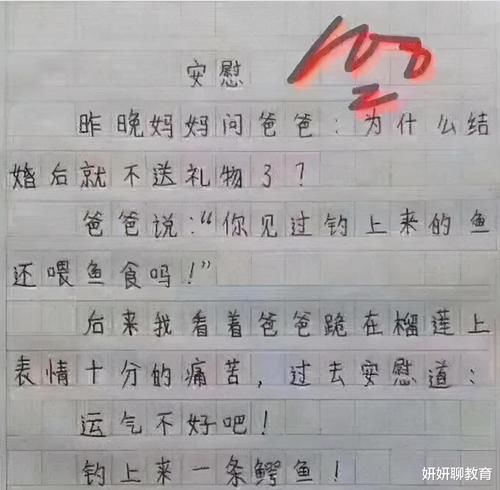 100
安慰
昨晚妈妈问爸爸：为什么结
婚后就不送礼物了？
爸爸说：“你见过钓上来的鱼
还喂鱼食吗！”
后来我看着爸爸跪在榴莲上
表情十分的痛苦，过去安慰道：
运气不好吧！
钓上来一条鳄鱼！
妍妍聊教育